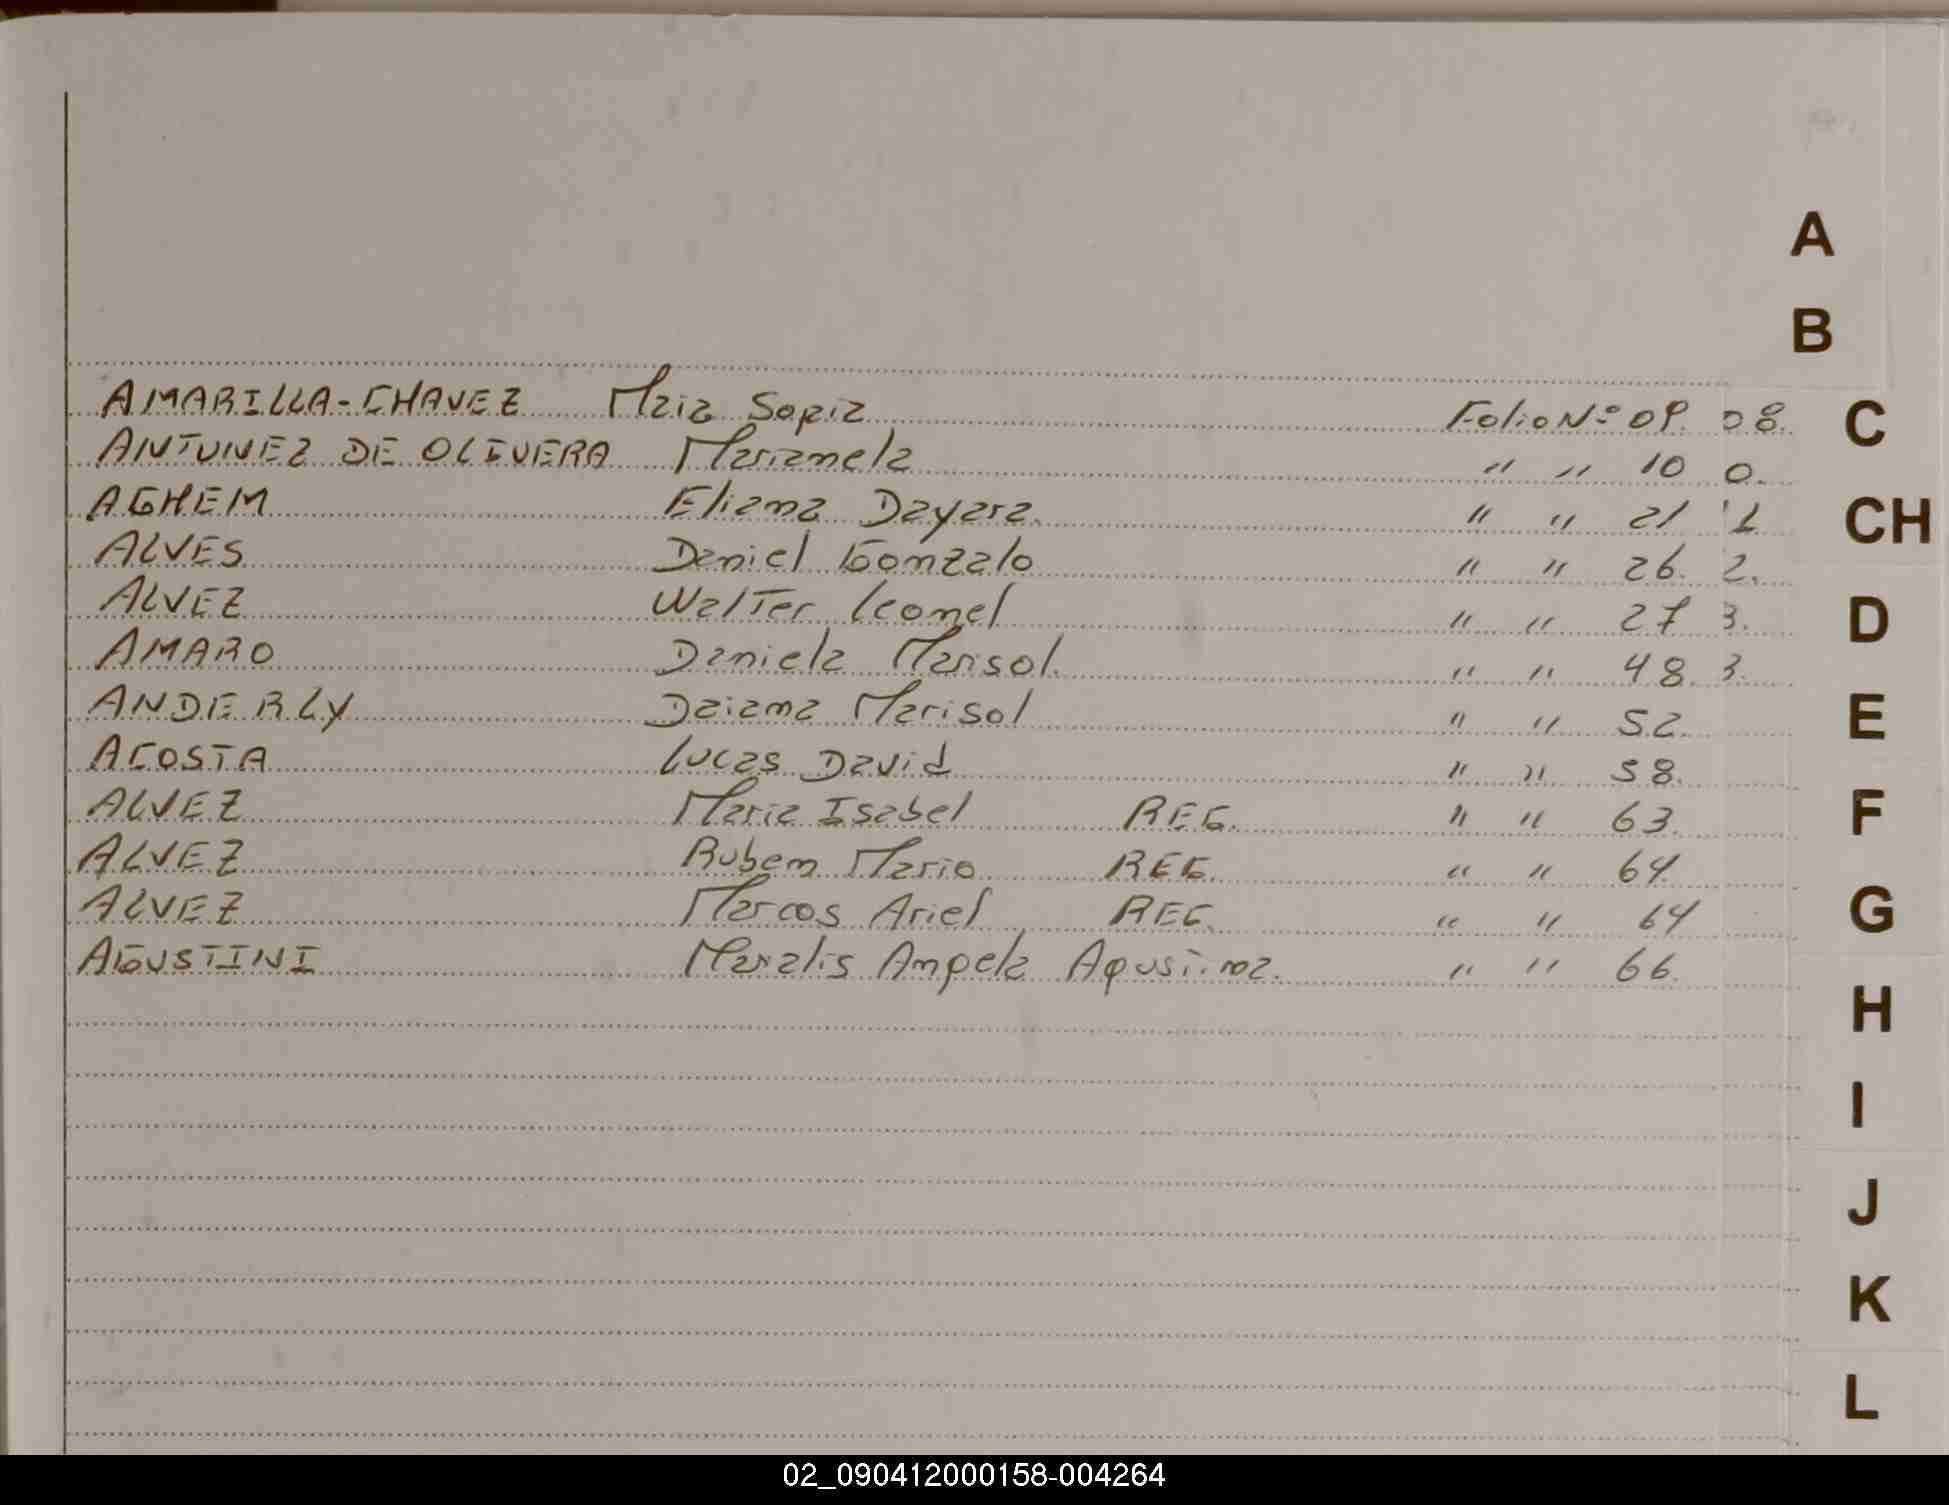 A
B
AMARILLA-CHAVEZ Maia Sopia Folio Nº 09. 08.
ANTUNEZ DE OLIVERA Marianela " " 10 0.
AGHEM Eliana Dayara. " " 21 1
ALVES Daniel Gonzalo " " 26. 2.
C
CH
ALVEZ Walter Leonel " " 27 3.
D
AMARO Daniela Marisol. " " 48. 3.
ANDERLY Daiana Marisol " " 52.
E
ACOSTA Lucas David " " 58.
ALVEZ Maria Isabel REG. " " 63.
F
ALVEZ Ruben Mario REG. " " 64
ALVEZ Marcos Ariel REG. " " 64
G
AGUSTINI Maralis Angela Agustina. " " 66.
H
I
J
K
L
02_090412000158-004264